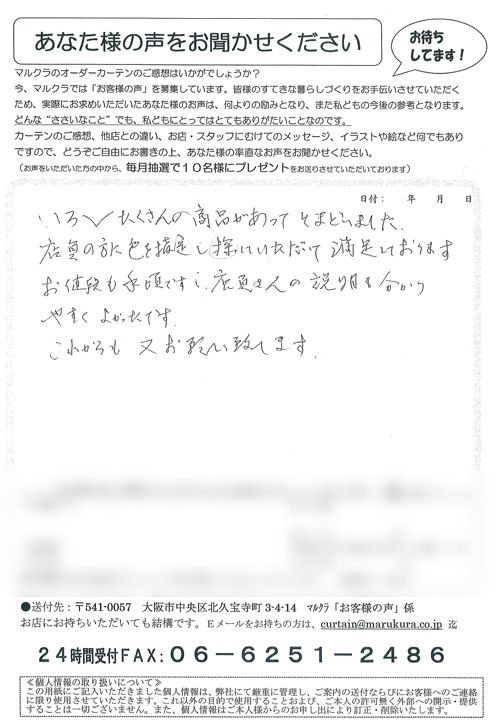 あなた様の声をお聞かせください
お待ち
してます!
マルクラのオーダーカーテンのご感想はいかがでしょうか?
今、マルクラでは「お客様の声」を募集しています。皆様のすてきな暮らしづくりをお手伝いさせていただく
ため、実際にお求めいただいたあなた様のお声は、何よりの励みとなり、また私どもの今後の参考となります。
どんな“ささいなこと”でも、私どもにとってはとてもありがたいことなのです。
カーテンのご感想、他店との違い、お店・スタッフにむけてのメッセージ、イラストや絵など何でもあり
ですので、どうぞご自由にお書きの上、あなた様の率直なお声をお聞かせください。
(お声をいただいた方の中から、毎月抽選で10名様にプレゼントをお送りさせていただいております)
日付: 年 月 日
いろいろたくさんの商品があってとまどいました。
店員の方に色を指定し探していただいて満足しております
お値段も手頃ですし、店員さんの説明も分かり
やすくよかったです。
これからも又お願い致します。
●送付先:〒541-0057 大阪市中央区北久宝寺町3-4-14 マルクラ「お客様の声」係
お店にお持ちいただいても結構です。Eメールをお持ちの方は、curtain@marukura.co.jp 迄
24時間受付FAX:06-6251-2486
≪個人情報の取り扱いについて≫
この用紙にご記入いただきました個人情報は、弊社にて厳重に管理し、ご案内の送付ならびにお客様へのご連絡
に限り使用させていただきます。これ以外の目的で使用することおよび、ご本人の許可無く外部への開示・提供
することは一切ございません。また、個人情報はご本人様からのお申し出により訂正・削除いたします。